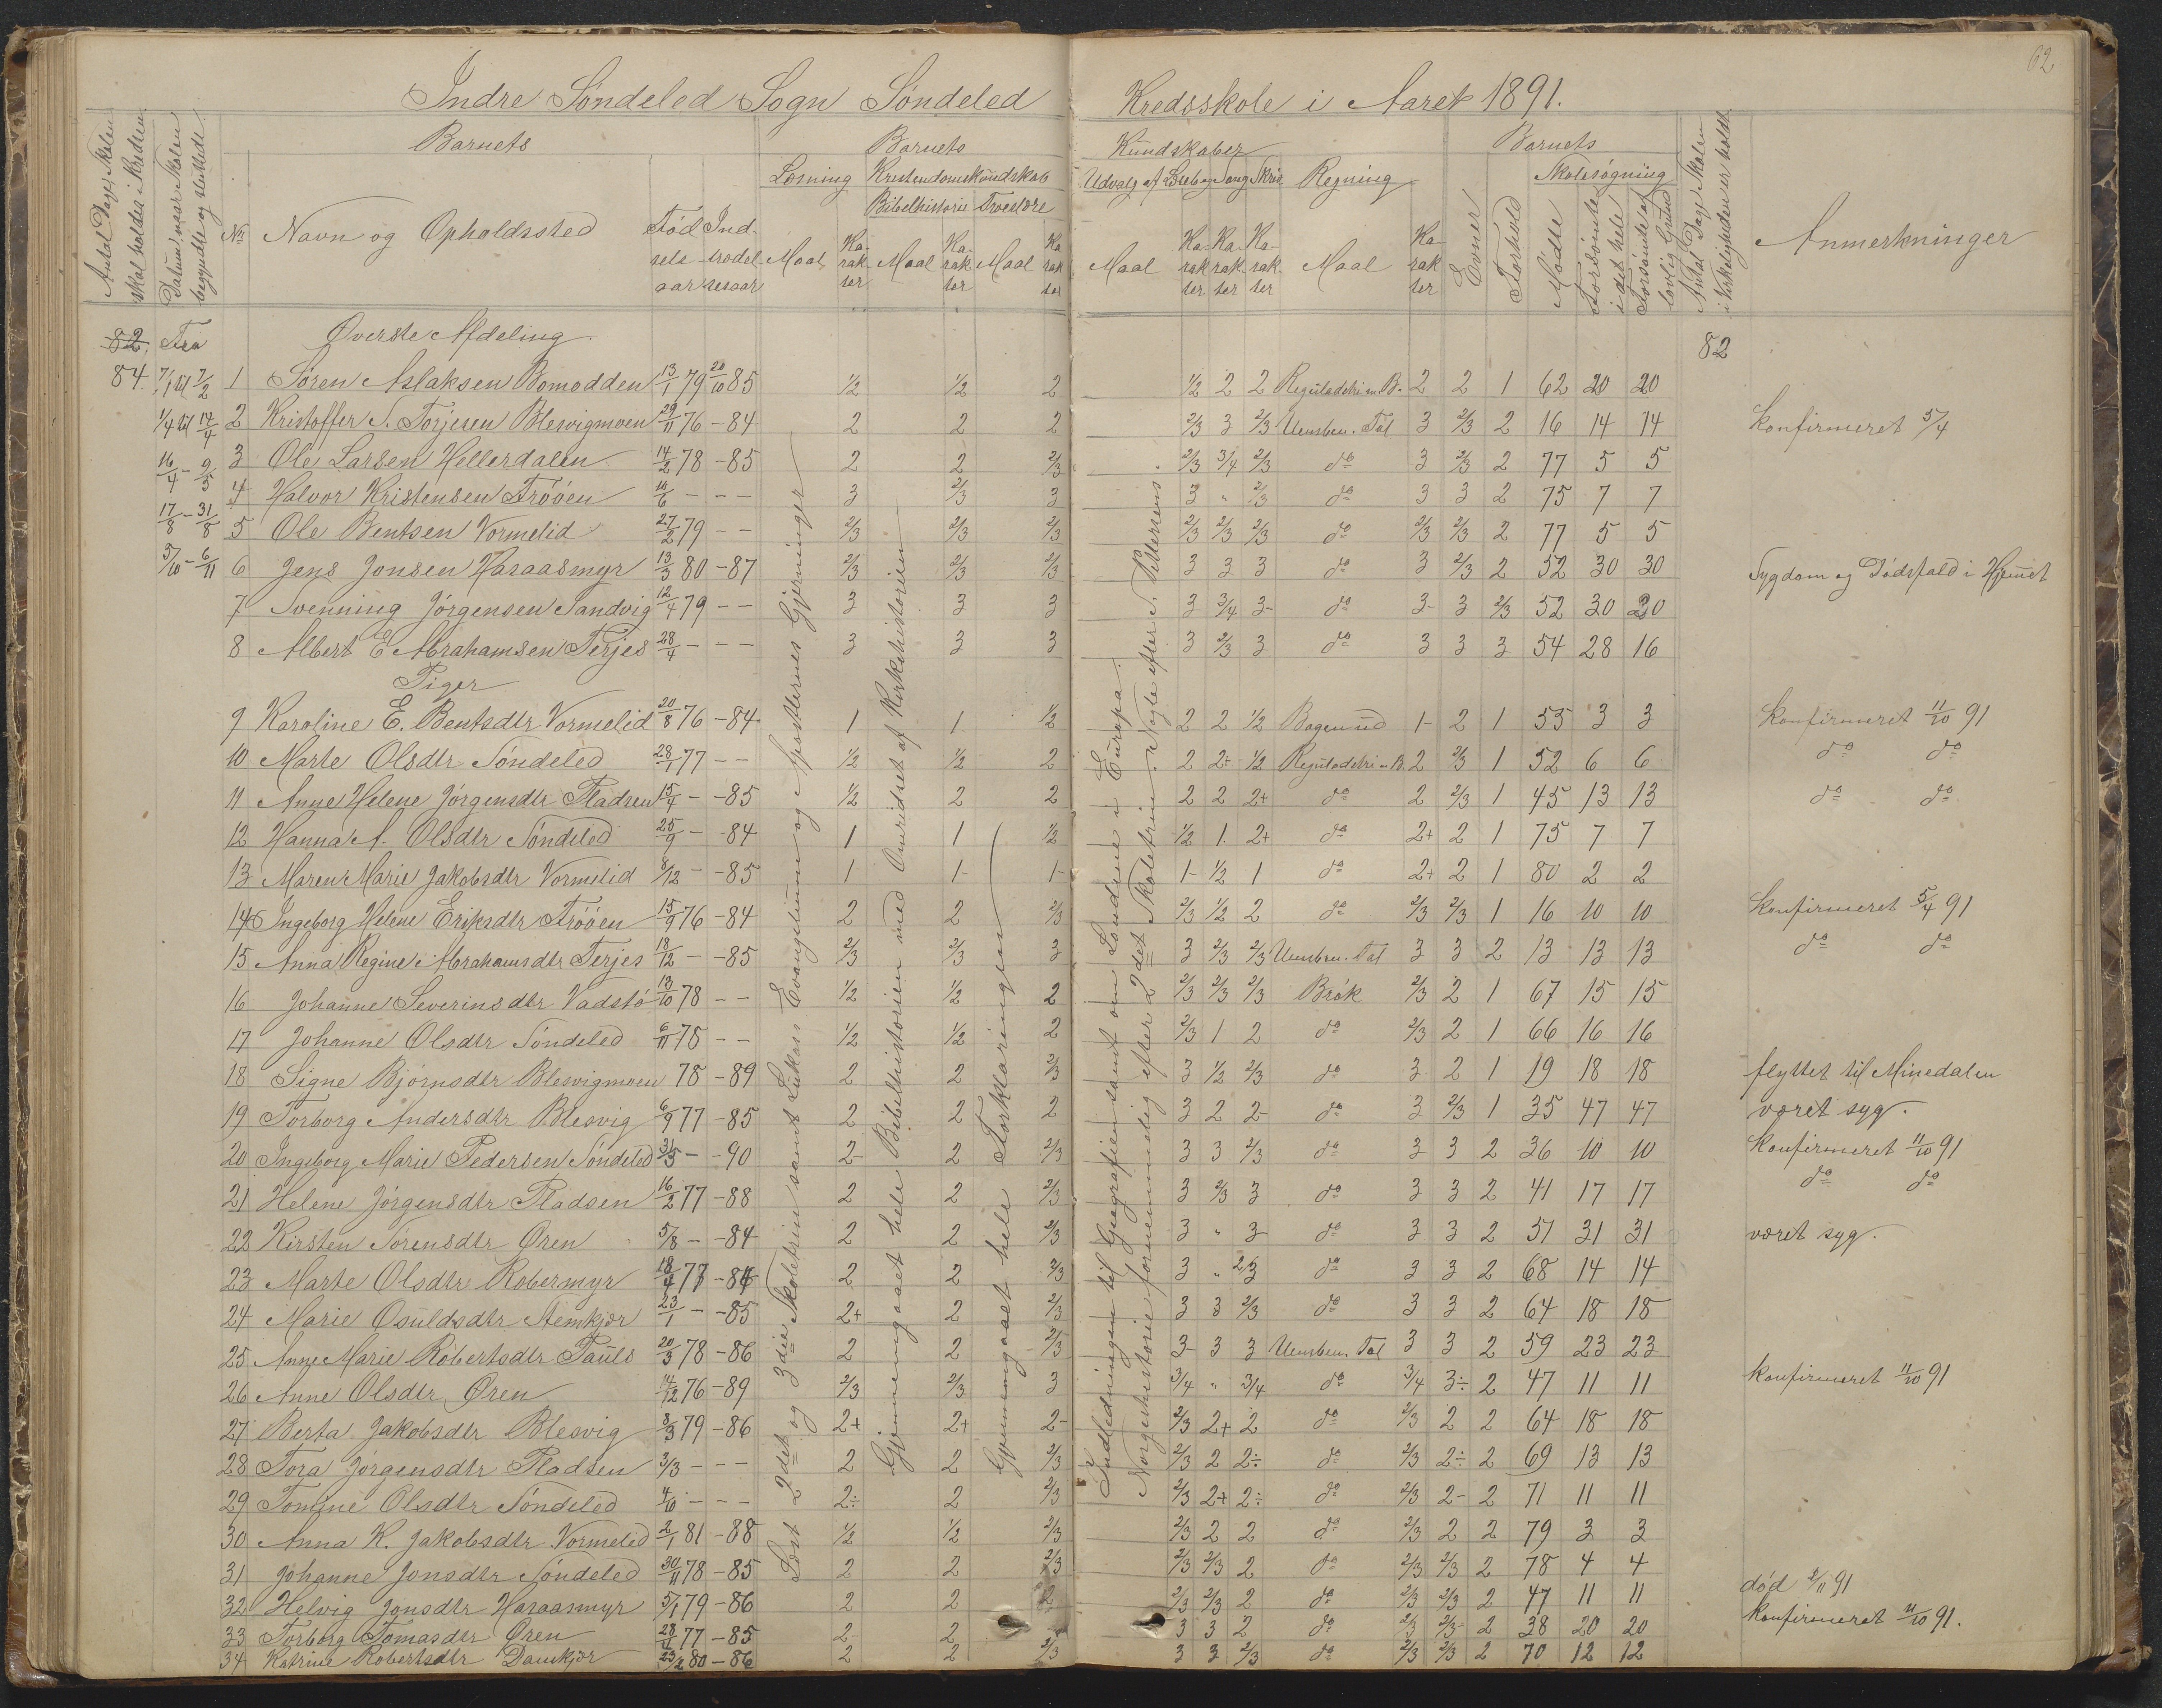 62
Indre Söndeled Sogn Söndeled Kredsskole i Aaret 1891.
Antal Dage Skolen skal holdes i Kredsen
Datum, naar Skolen begyndte og sluttede
No
Barnets
Navn og Opholdssted
Födselsaar
Indtrædelsesaar
Barnets Kundskaber
Læsning Kristendomskundskab
Bibelhistorie Troeslære
Maal Karakter Maal Karakter Maal Karakter
Udvalg af Læsebog Sang Skriv Regning
Maal Karakter Karakter Karakter Maal Karakter
Barnets
Evner
Forhold
Skolesøgning
Mödte
Forsömte i det hele
Forsömte af lovlig Grund
Antal Dage Skolen i Virkeligheden er holdt
Anmerkninger
82. Fra Øverste Afdeling. 82
84. 7/1 til 7/2 1 Sören Aslaksen Bomodden 13/1 79 20/10 85 1/2 1/2 2 1/2 2 2 Reguladetri m B. 2 2 1 62 20 20
1/4 til 14/4 2 Kristoffer S. Torjesen Blesvigmoen 29/11 76 -84 2 2 2 2/3 3 2/3 Uensben. Tal 3 2/3 2 16 14 14 Konfirmeret 5/4
16/4 - 9/5 3 Ole Larsen Hellerdalen 14/2 78 -85 2 2 2/3 2/3 3/4 2/3 do 3 2/3 2 77 5 5
4 Halvor Kristensen Tröóen 10/6 - - - 3 2/3 3 3 " 2/3 do 3 3 2 75 7 7
17/8 - 31/8 5 Ole Bentsen Vormelid 27/2 79 - - 2/3 2/3 2/3 2/3 2/3 2/3 do 2/3 2/3 2 77 5 5
5/10 - 6/11 6 Jens Jonsen Haraasmyr 13/3 80 -87 2/3 2/3 2/3 3 3 3 do 3 2/3 2 52 30 30 Sygdom og Dödsfald i Hjemmet
7 Svenning Jörgensen Sandvig 12/4 79 - - 3 3 3 3 3/4 3- do 3- 3 2/3 52 30 20
8 Albert E Abrahamsen Terjes 28/4 - - - 3 3 3 3 2/3 3 do 3 3 3 54 28 16
Piger
9 Karoline E. Bentsdtr Vormelid 20/8 76 -84 1 1 1/2 2 2 1/2 Bogen ud 1- 2 1 55 3 3 Konfirmeret 11/10 91
10 Marte Olsdtr Söndeled 28/1 77 - - 1/2 1/2 2 2 2+ 1/2 Reguladetri m B. 2 2/3 1 52 6 6 do do
11 Anne Helene Jörgensdtr Pladsen 15/4 - -85 1/2 2 2 2 2 2+ do 2 2/3 1 45 13 13 do do
12 Hanna A. Olsdtr Söndeled 25/9 - -84 1 1 1/2 1/2 1. 2+ do 2+ 2 1 75 7 7
13 Maren Marie Jakobsdtr Vormelid 8/12 - -85 1 1- 1- 1- 1/2 1 do 2+ 2 1 80 2 2
14 Ingeborg Helene Eriksdtr Tröóen 15/9 76 -84 2 2 2/3 2/3 1/2 2 do 2/3 2/3 1 16 10 10 Konfirmeret 5/4 91
15 Anna Regine Abrahamsdtr Terjes 18/12 - -85 2/3 2/3 3 3 2/3 2/3 Uensben. Tal 3 3 2 13 13 13 do do
16 Johanne Severinsdtr Vadstö 13/10 78 - - 1/2 1/2 2 2/3 2/3 2/3 Brök 2/3 2 1 67 15 15
17 Johanne Olsdtr Söndeled 6/11 78 - - 1/2 1/2 2 2/3 1 2 do 2/3 2 1 66 16 16
18 Signe Björnsdtr Blesvigmoen 78 -89 2 2 2/3 3 1/2 2/3 do 3 2 1 19 18 18 flyttet til Minedalen
19 Torborg Andersdtr Blesvig 6/9 77 -85 2 2 2 3 2 2- do 3 2/3 1 35 47 47 været syg.
20 Ingeborg Marie Pedersen Söndeled 31/5 - -90 2- 2 2/3 3 3 2/3 do 3 3 2 36 10 10 Konfirmeret 11/10 91
21 Helene Jörgensdtr Pladsen 16/2 77 -88 2 2 2/3 3 2/3 3 do 3 3 2 41 17 17 do do
22 Kirsten Sorensdtr Øren 5/8 - -84 2 2 2/3 3 " 3- do 3 3 2 51 31 31 været syg.
23 Marte Olsdtr Robermyr 18/4 77 -84 2 2 2/3 3 " 2/3 do 3 3 2 68 14 14
24 Marie Osuldsdtr Stemkjær 23/1 - -85 2+ 2 2/3 3 3 2/3 do 3 3 2 64 18 18
25 Anne Marie Robertsdtr Pauls 20/3 78 -86 2 2 2/3 3- 3 3 Uensben. Tal 3 3 2 59 23 23
26 Anne Olsdtr Øren 14/12 76 -89 2/3 2/3 3 3/4 " 3/4 do 3/4 3÷ 2 47 11 11 Konfirmeret 11/10 91
27 Berta Jakobsdtr Blesvig 8/3 79 -86 2+ 2+ 2- 2/3 2+ 2 do 2/3 2 2 64 18 18
28 Tora Jörgensdtr Pladsen 3/3 - - - 2 2 2/3 2/3 2 2÷ do 2/3 2÷ 2 69 13 13
29 Tomine Olsdtr Söndeled 4/10 - - - 2÷ 2 2/3 2/3 2+ 2÷ do 2/3 2- 2 71 11 11
30 Anna K. Jakobsdtr Vormelid 2/1 81 -88 1/2 1/2 2/3 2/3 2 2 do 2/3 2 2 79 3 3
31 Johanne Jonsdtr Söndeled 30/11 78 -85 2 2 2/3 2/3 2/3 2 do 2/3 2/3 2 78 4 4
32 Helvig Jonsdtr Haraasmyr 5/1 79 -86 2 2 2/3 2/3 2 do 2/3 2/3 2 47 11 11 död 2/11 91
33 Torborg Tomasdtr Øren 28/11 77 -85 2- 2 3 3 2 do 2/3 2/3- 2 38 20 20 Konfirmeret 11/10 91.
34 Katrine Robertsdtr Damkjær 23/2 80 -86 2 2 2/3 3 3 2/3 do 2/3 2/3 2 70 12 12
Læst 2det og 3die Skoletrin samt Lukas Evangelium og Apostlernes Gjerninger
Gjennemgaaet hele Bibelhistorien med Omridset af Kirkehistorien
Gjennemgaaet hele Forklaringen
Indledningen til Geografien samt om Landene i Europa.
Norgeshistorie fornemmelig efter 2det Skoletrin. Nogle efter S. Petersens.